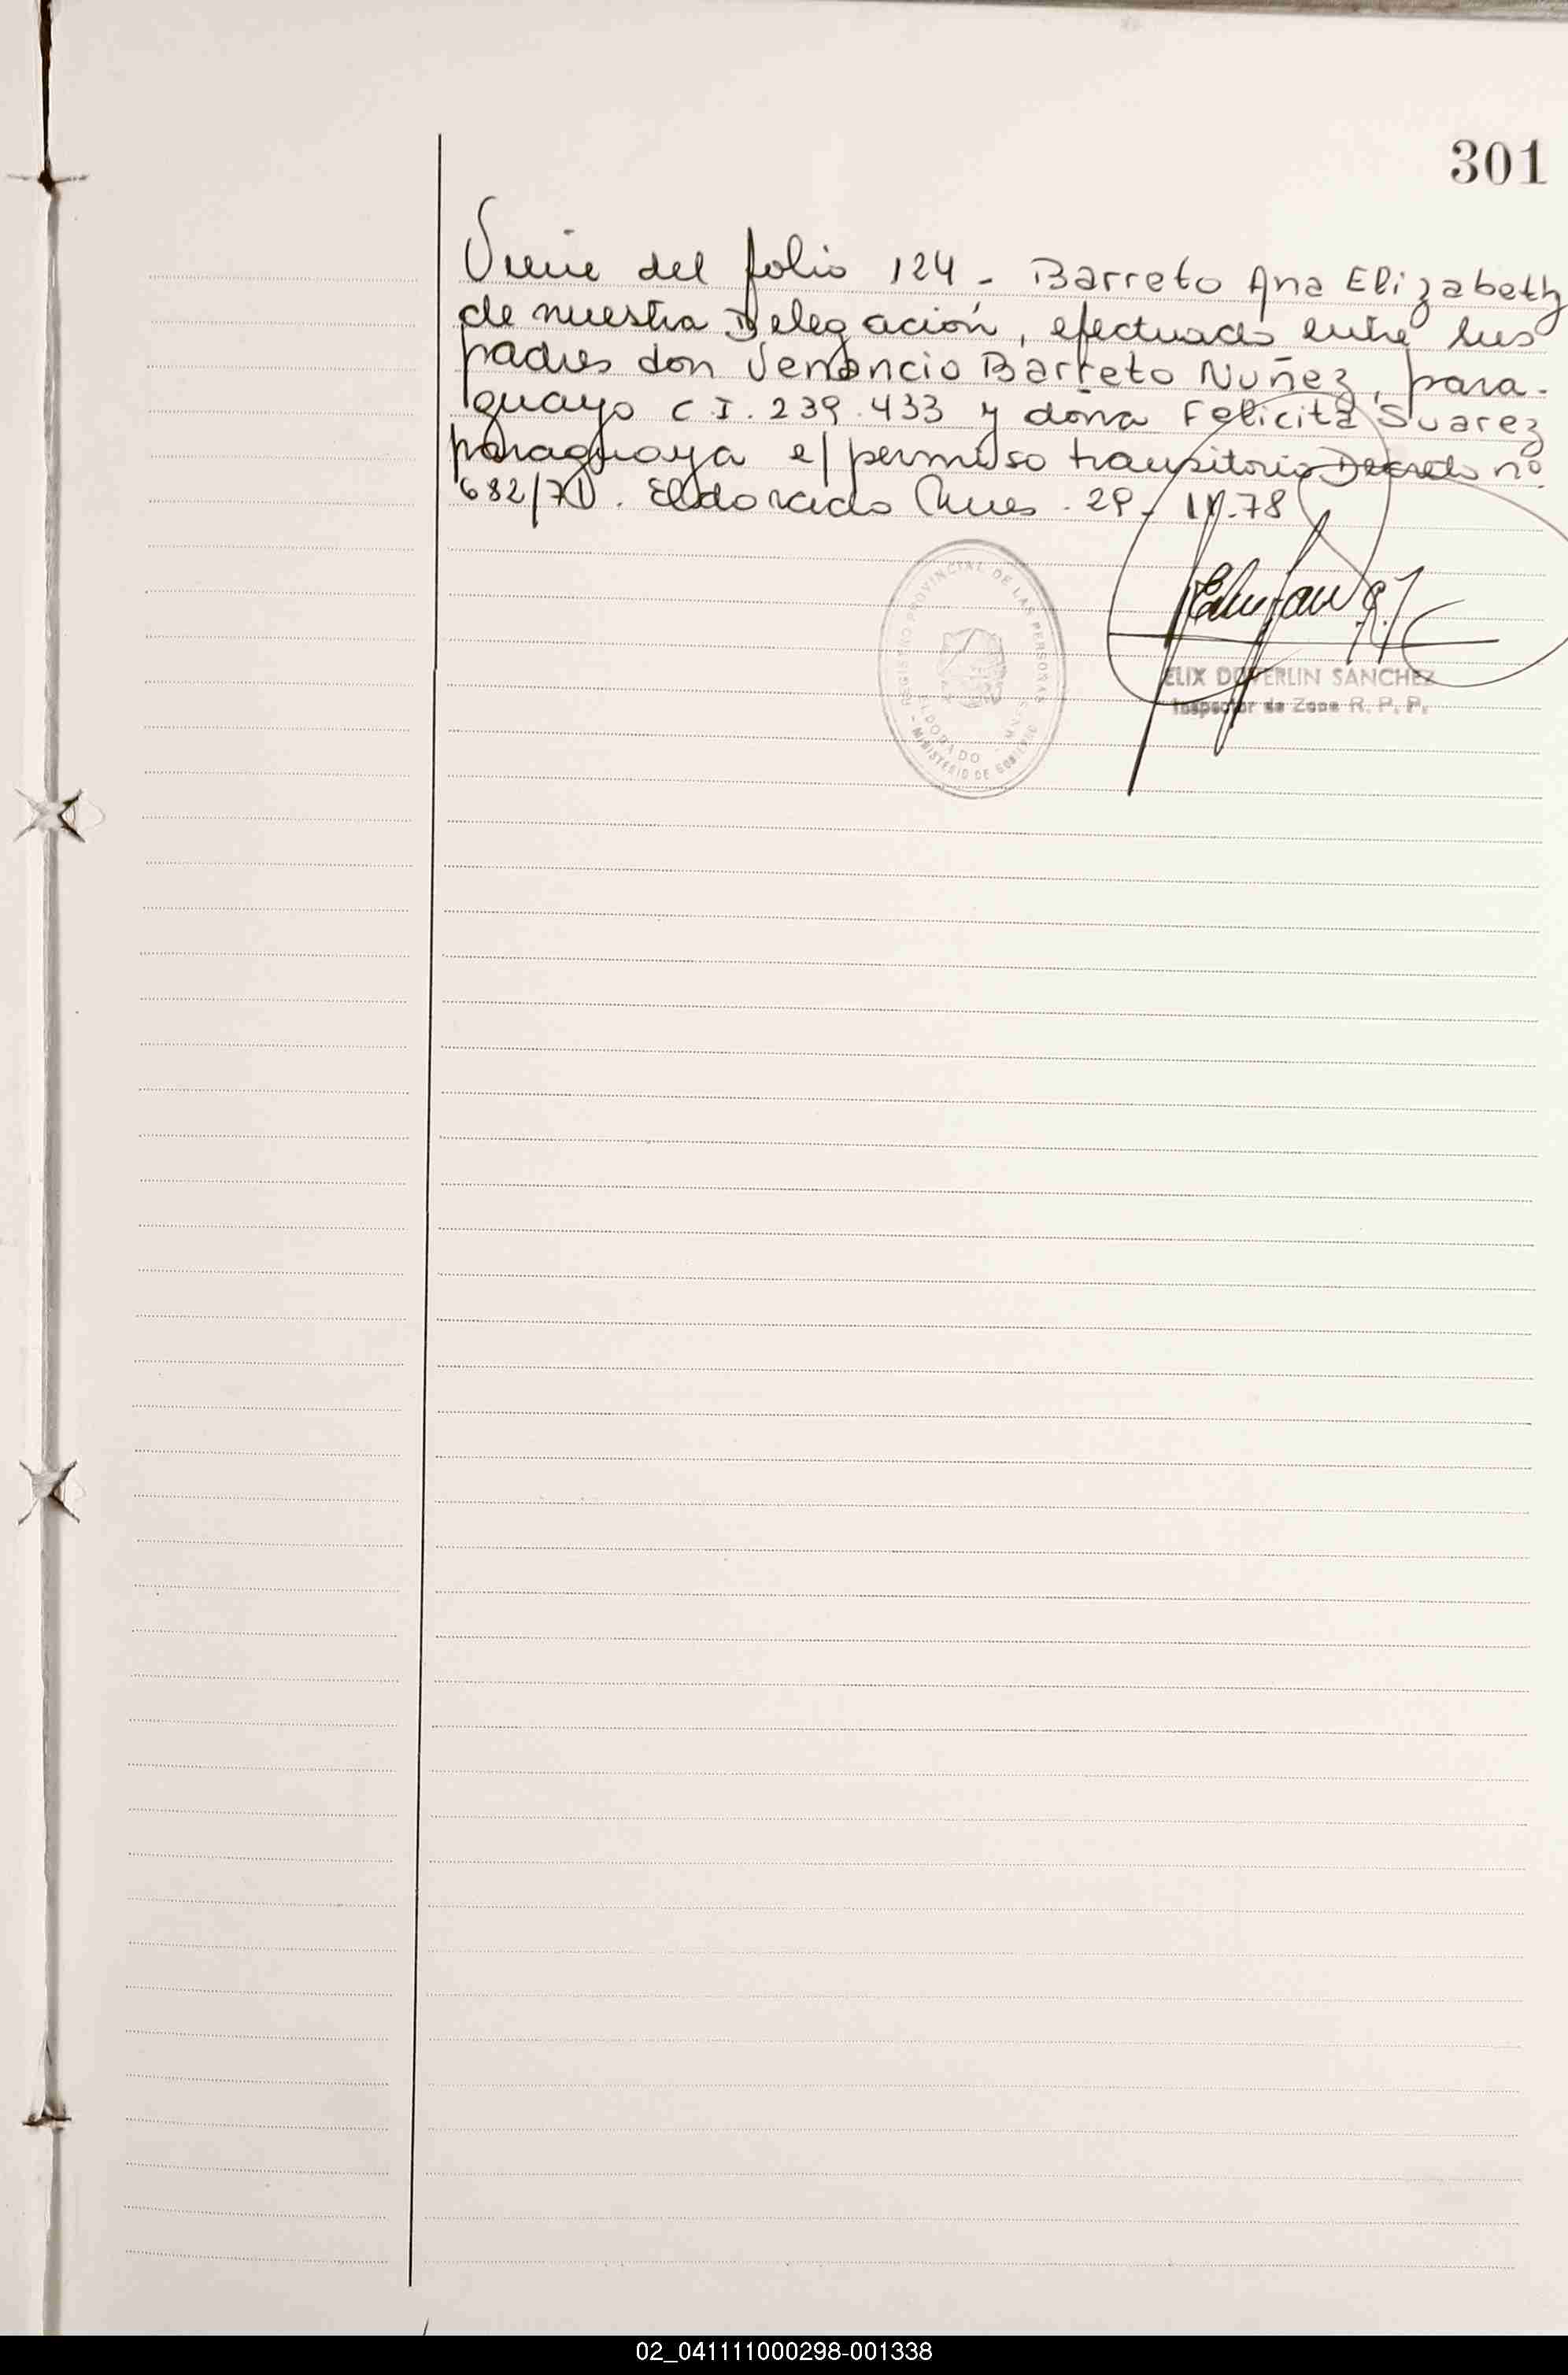 301
Viene del folio 124 - Barreto Ana Elizabeth
de nuestra Delegación, efectuado entre sus
padres don Venancio Barreto Nuñez, para-
guayo C.I. 239.433 y doña Felicita Suarez
paraguaya c/ permiso transitorio Decreto nº
682/70. Eldorado Mnes. 29-
REGISTRO PROVINCIAL DE LAS PERSONAS
ELDORADO - MNES
- MINISTERIO DE GOBIERNO -
ELIX DUVERLIN SANCHEZ
Inspector de Zona R. P. P.
02_041111000298-001338